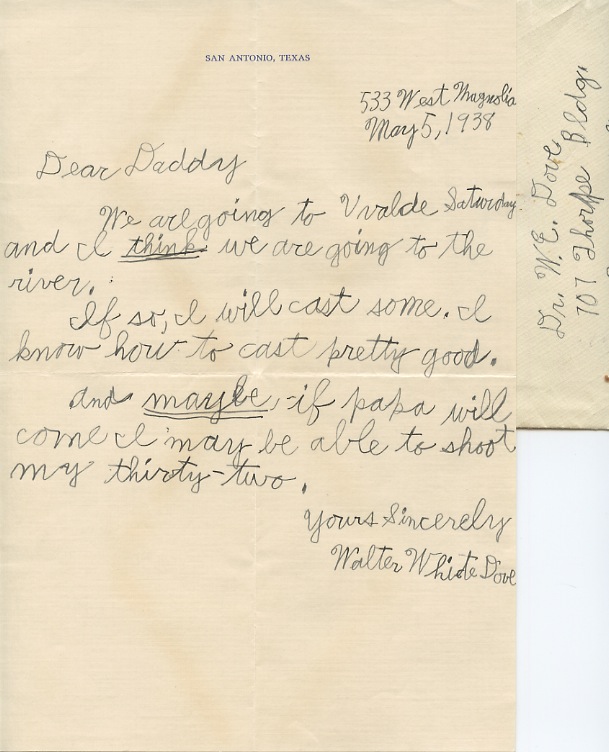 SAN ANTONIO, TEXAS
533 West Magnolia
May 5, 1938
Dear Daddy
We are going to Uvalde Saturday
and I think we are going to the
river.
If so, I will cast some. I
know how to cast pretty good.
And maybe, if papa will
come I may be able to shoot
my thirty-two.
Yours Sincerely
Walter White Dove
Dr. W.E. Dove
707 Thorpe Bldg.